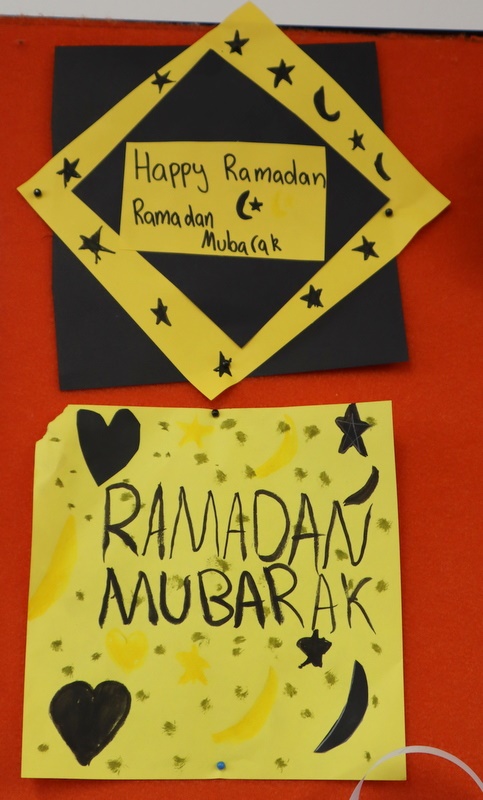 Happy Ramadan
Ramadan
Mubarak
RAMADAN
MUBARAK